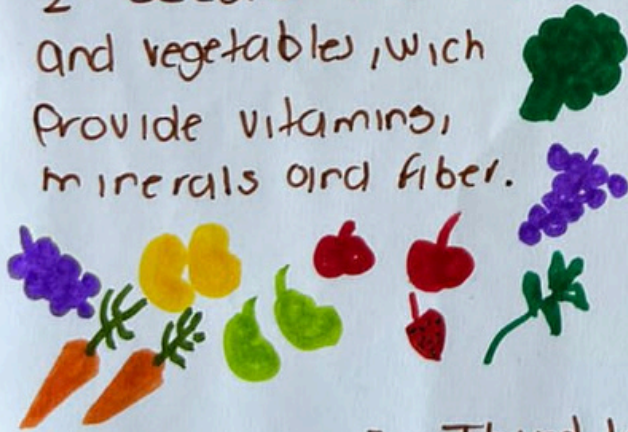 and vegetables, wich
provide vitamins,
minerals and fiber.